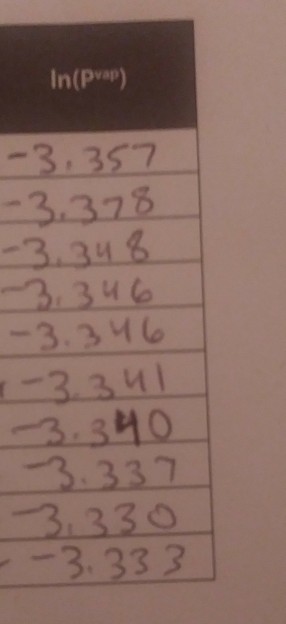 ln(Pvap)
-3.357
-3.378
-3.348
-3.346
-3.346
-3.341
-3.340
-3.337
-3.330
-3.333